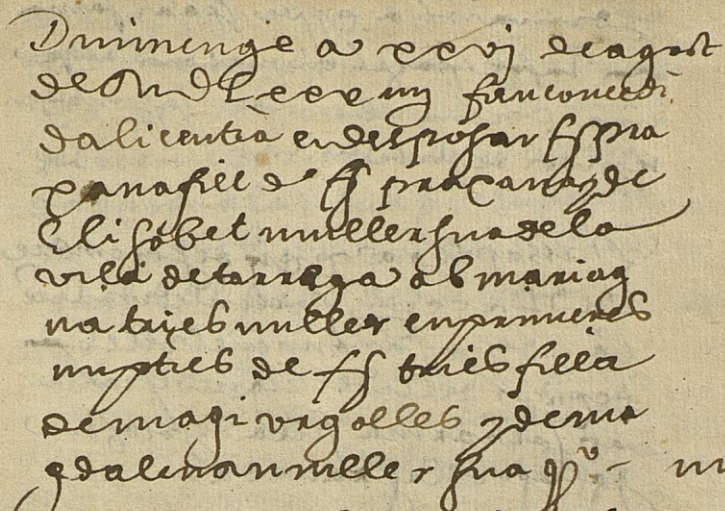 Diumenge a xxvj de agost
de MDLxxxviiij fou concedi
da licentia en desposar fr̃
xana fill de fr̃ xana y de
Elisabet muller sua de la
vila de tarrega ab mariag
na tries muller en primeres
nupties de fr̃ tries filla
de magi urgelles y de ma
gdalena muller sua qº -